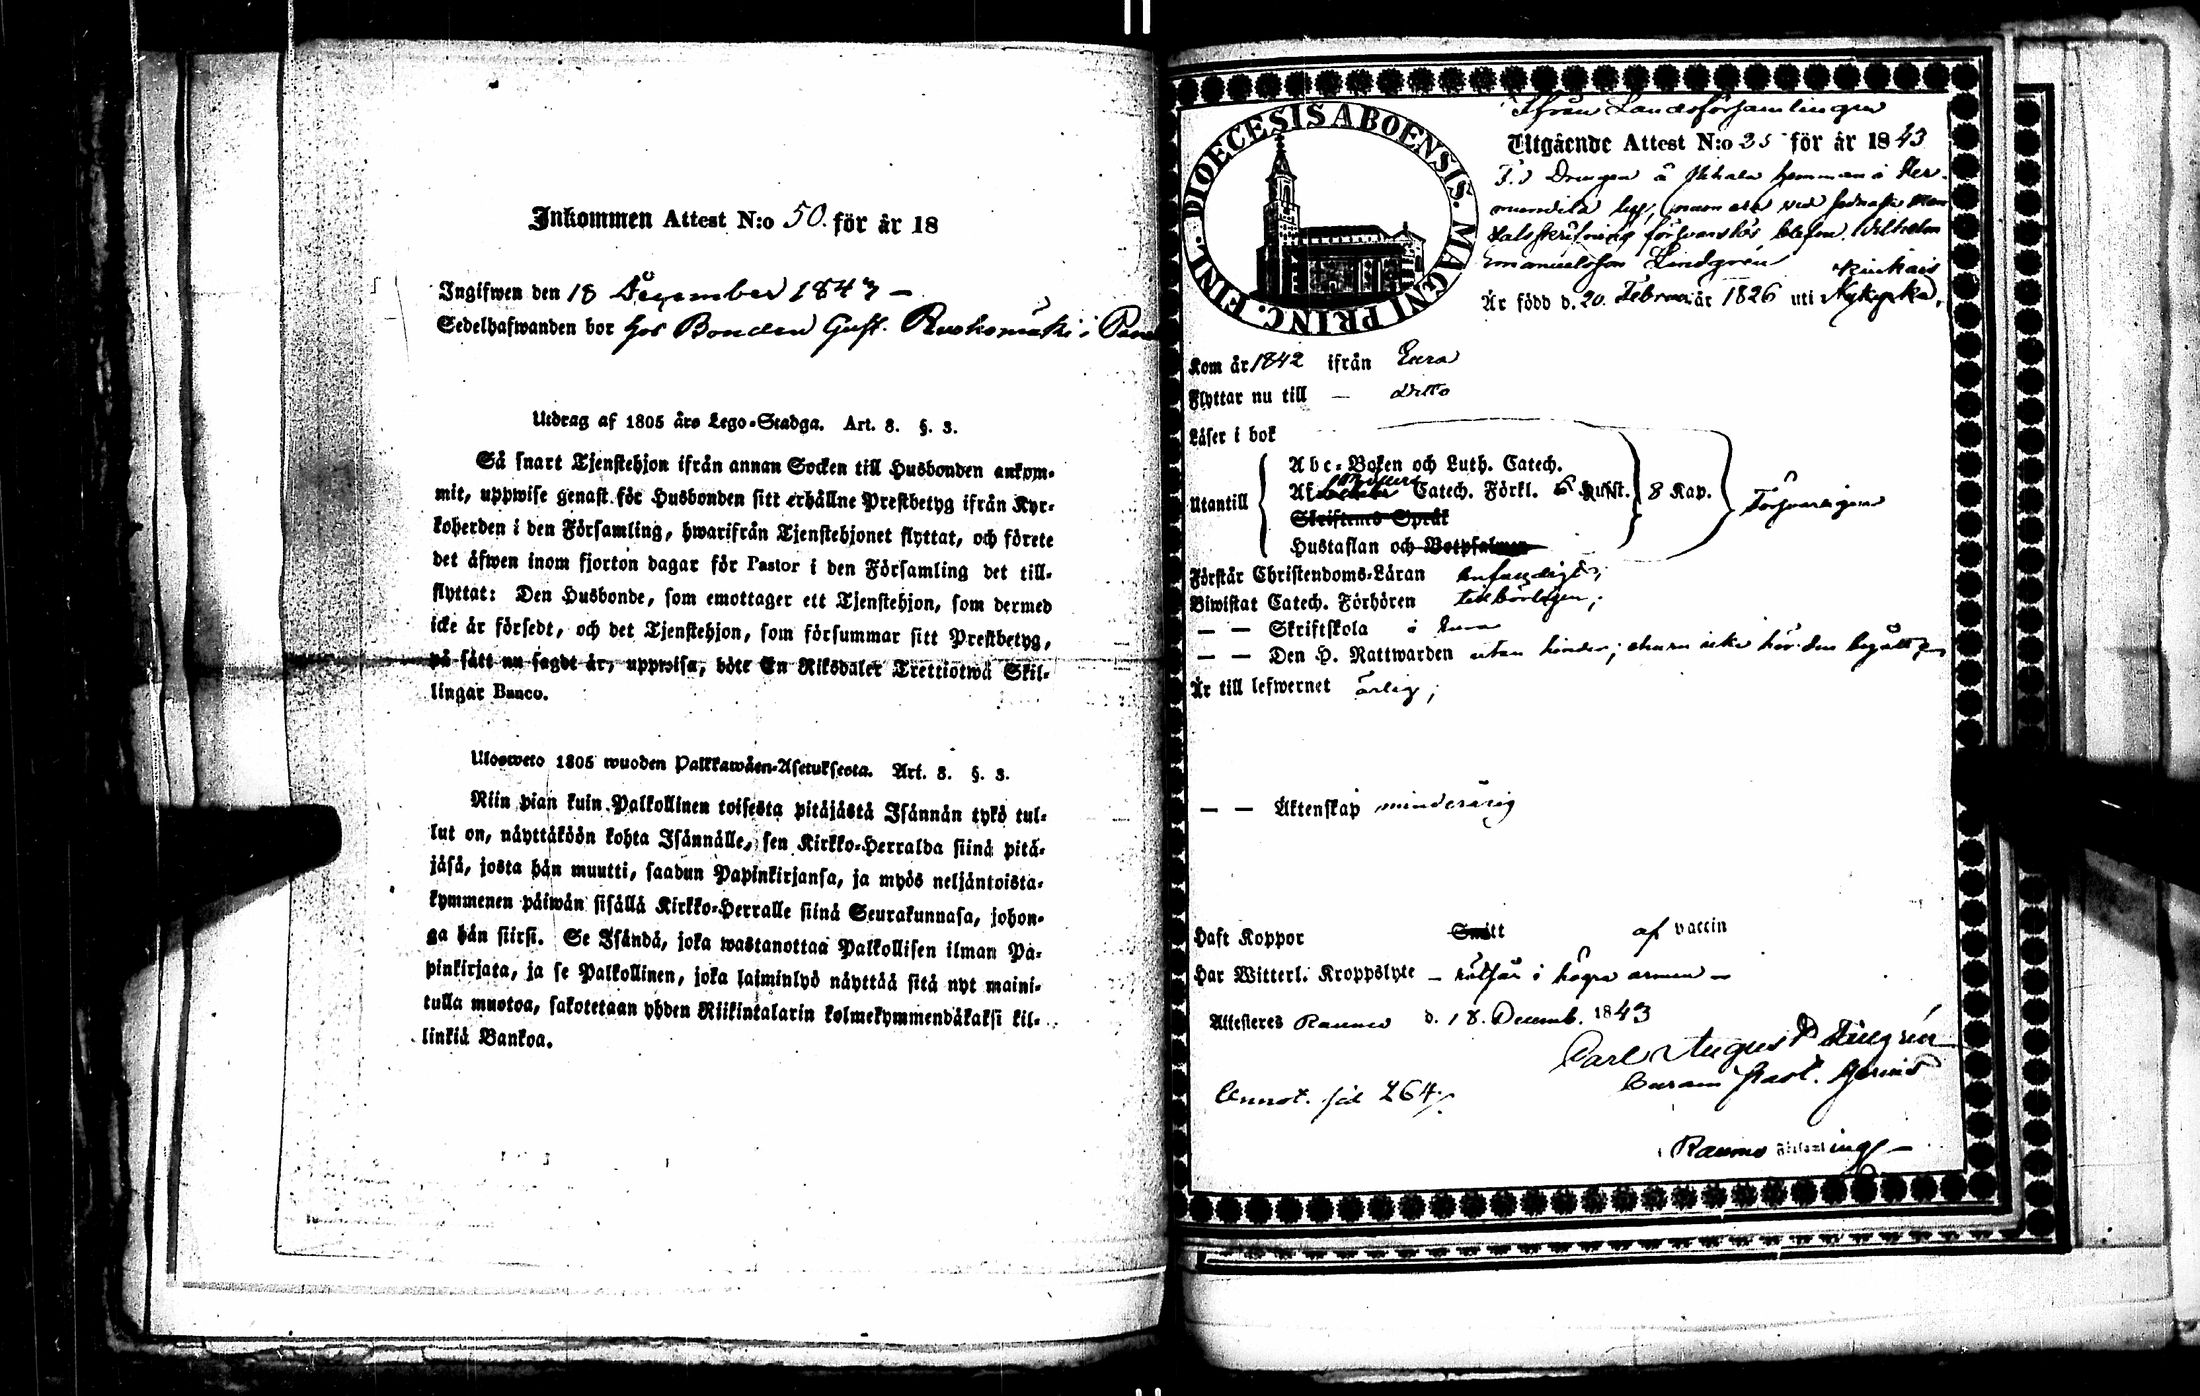 Inkommen Attest N:o 50. för år 18
Ingifwen den 18 December 1843 –
Sedelhafwanden bor hos Bonden Gust. Ruohomäki i
Utdrag af 1805 års Lego-Stadga. Art. 8. §. 3.
Så snart Tjenstehjon ifrån annan Socken till Husbonden ankom-
mit, uppwise genast för Husbonden sitt erhållne Prestbetyg ifrån Kyr-
koherden i den Församling, hwarifrån Tjenstehjonet flyttat, och förete
det äfwen inom fjorton dagar för Pastor i den Församling det till-
flyttat: Den Husbonde, som emottager ett Tjenstehjon, som dermed
icke är försedt, och det Tjenstehjon, som försummar sitt Prestbetyg,
på sätt nu sagdt är, uppwisa, böte En Riksdaler Trettiotwå Skil-
lingar Banco.
Ulosweto 1805 wuoden Palkkawäen-Asetuksesta. Art. 8. §. 3.
Niin pian kuin Palkollinen toisesta pitäjästä Isännän tykö tul-
lut on, näyttäköön kohta Isännälle, sen Kirkko-Herralda siinä pitä-
jäsä, josta hän muutti, saadun Papinkirjansa, ja myös neljäntoista-
kymmenen päiwän sisällä Kirkko-Herralle siinä Seurakunnasa, johon-
ga hän siirsi. Se Isändä, joka wastanottaa Palkollisen ilman Pa-
pinkirjata, ja se Palkollinen, joka laiminlyö näyttää sitä nyt maini-
tulla muotoa, sakotetaan yhden Riikintalarin kolmekymmendäkaksi kil-
linkiä Bankoa.
DIOECESIS ABOENSIS. MAGNI PRINC. FINL.
Ifrån Landsförsamlingen
Utgående Attest N:o 35 för år 1843
F.d Drengen å hemman i
wid
talsskrifning förswarslös blefne. Wilhelm
Emanuelsson Lindgrén
Är född d. 20. Februari år 1826 uti Kiukais Nykyrka,
Kom år 1842 ifrån Eura
Flyttar nu till – ditto
Läser i bok
Utantill
Abc-Boken och Luth. Catech.
Af Catech. Förkl. 6 Hufst. 8 Kap. Förswarligen
Skriftenes Språk
Hustaflan och Botpsalmer
Förstår Christendoms-Läran enfaldigt;
Biwistat Catech. Förhören tillbörligen;
– – Skriftskola i Eura
– – Den H. Nattwarden utan hinder; ehuru icke här den begått;
Är till lefwernet ärlig;
– – Äktenskap minderårig
Haft Koppor Smitt af vaccin
Har Witterl. Kroppslyte – i högra armen –
Attesteres Raumo d. 18. Decemb. 1843
Carl August
Annot. sid 264
i Raumo Församling –